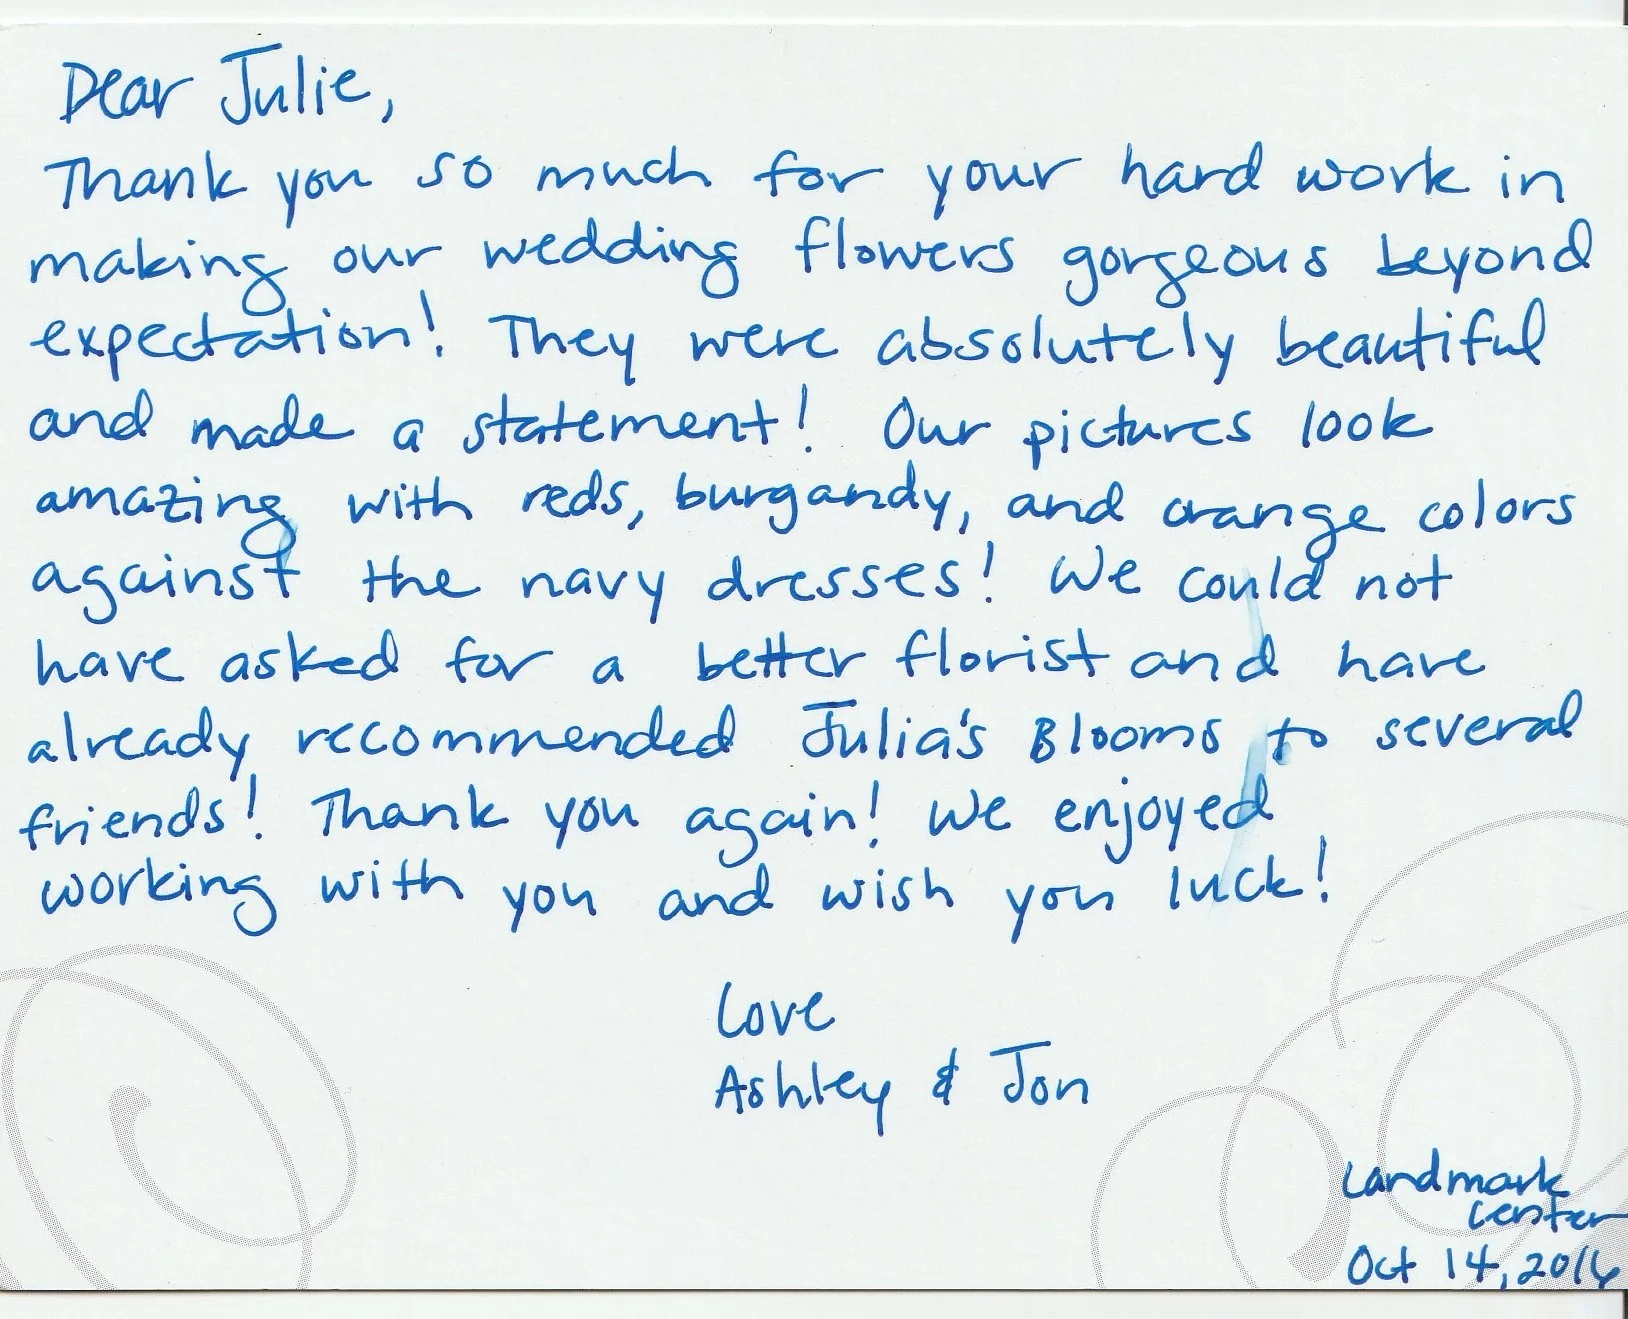 Dear Julie,
Thank you so much for your hard work in
making our wedding flowers gorgeous beyond
expectation! They were absolutely beautiful
and made a statement! Our pictures look
amazing with reds, burgandy, and orange colors
against the navy dresses! We could not
have asked for a better florist and have
already recommended Julia's Blooms to several
friends! Thank you again! We enjoyed
working with you and wish you luck!
Love
Ashley & Jon
Landmark
Center
Oct 14, 2016